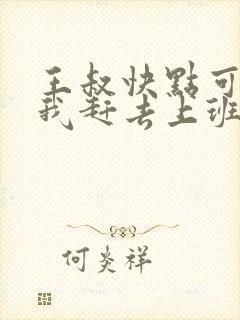 王叔快點可
我赶去上班
何炎祥